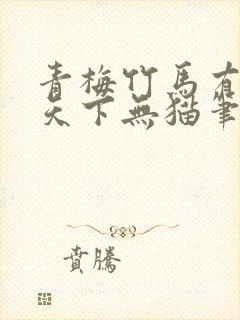 青梅竹馬有
天下無貓筆
賁騰